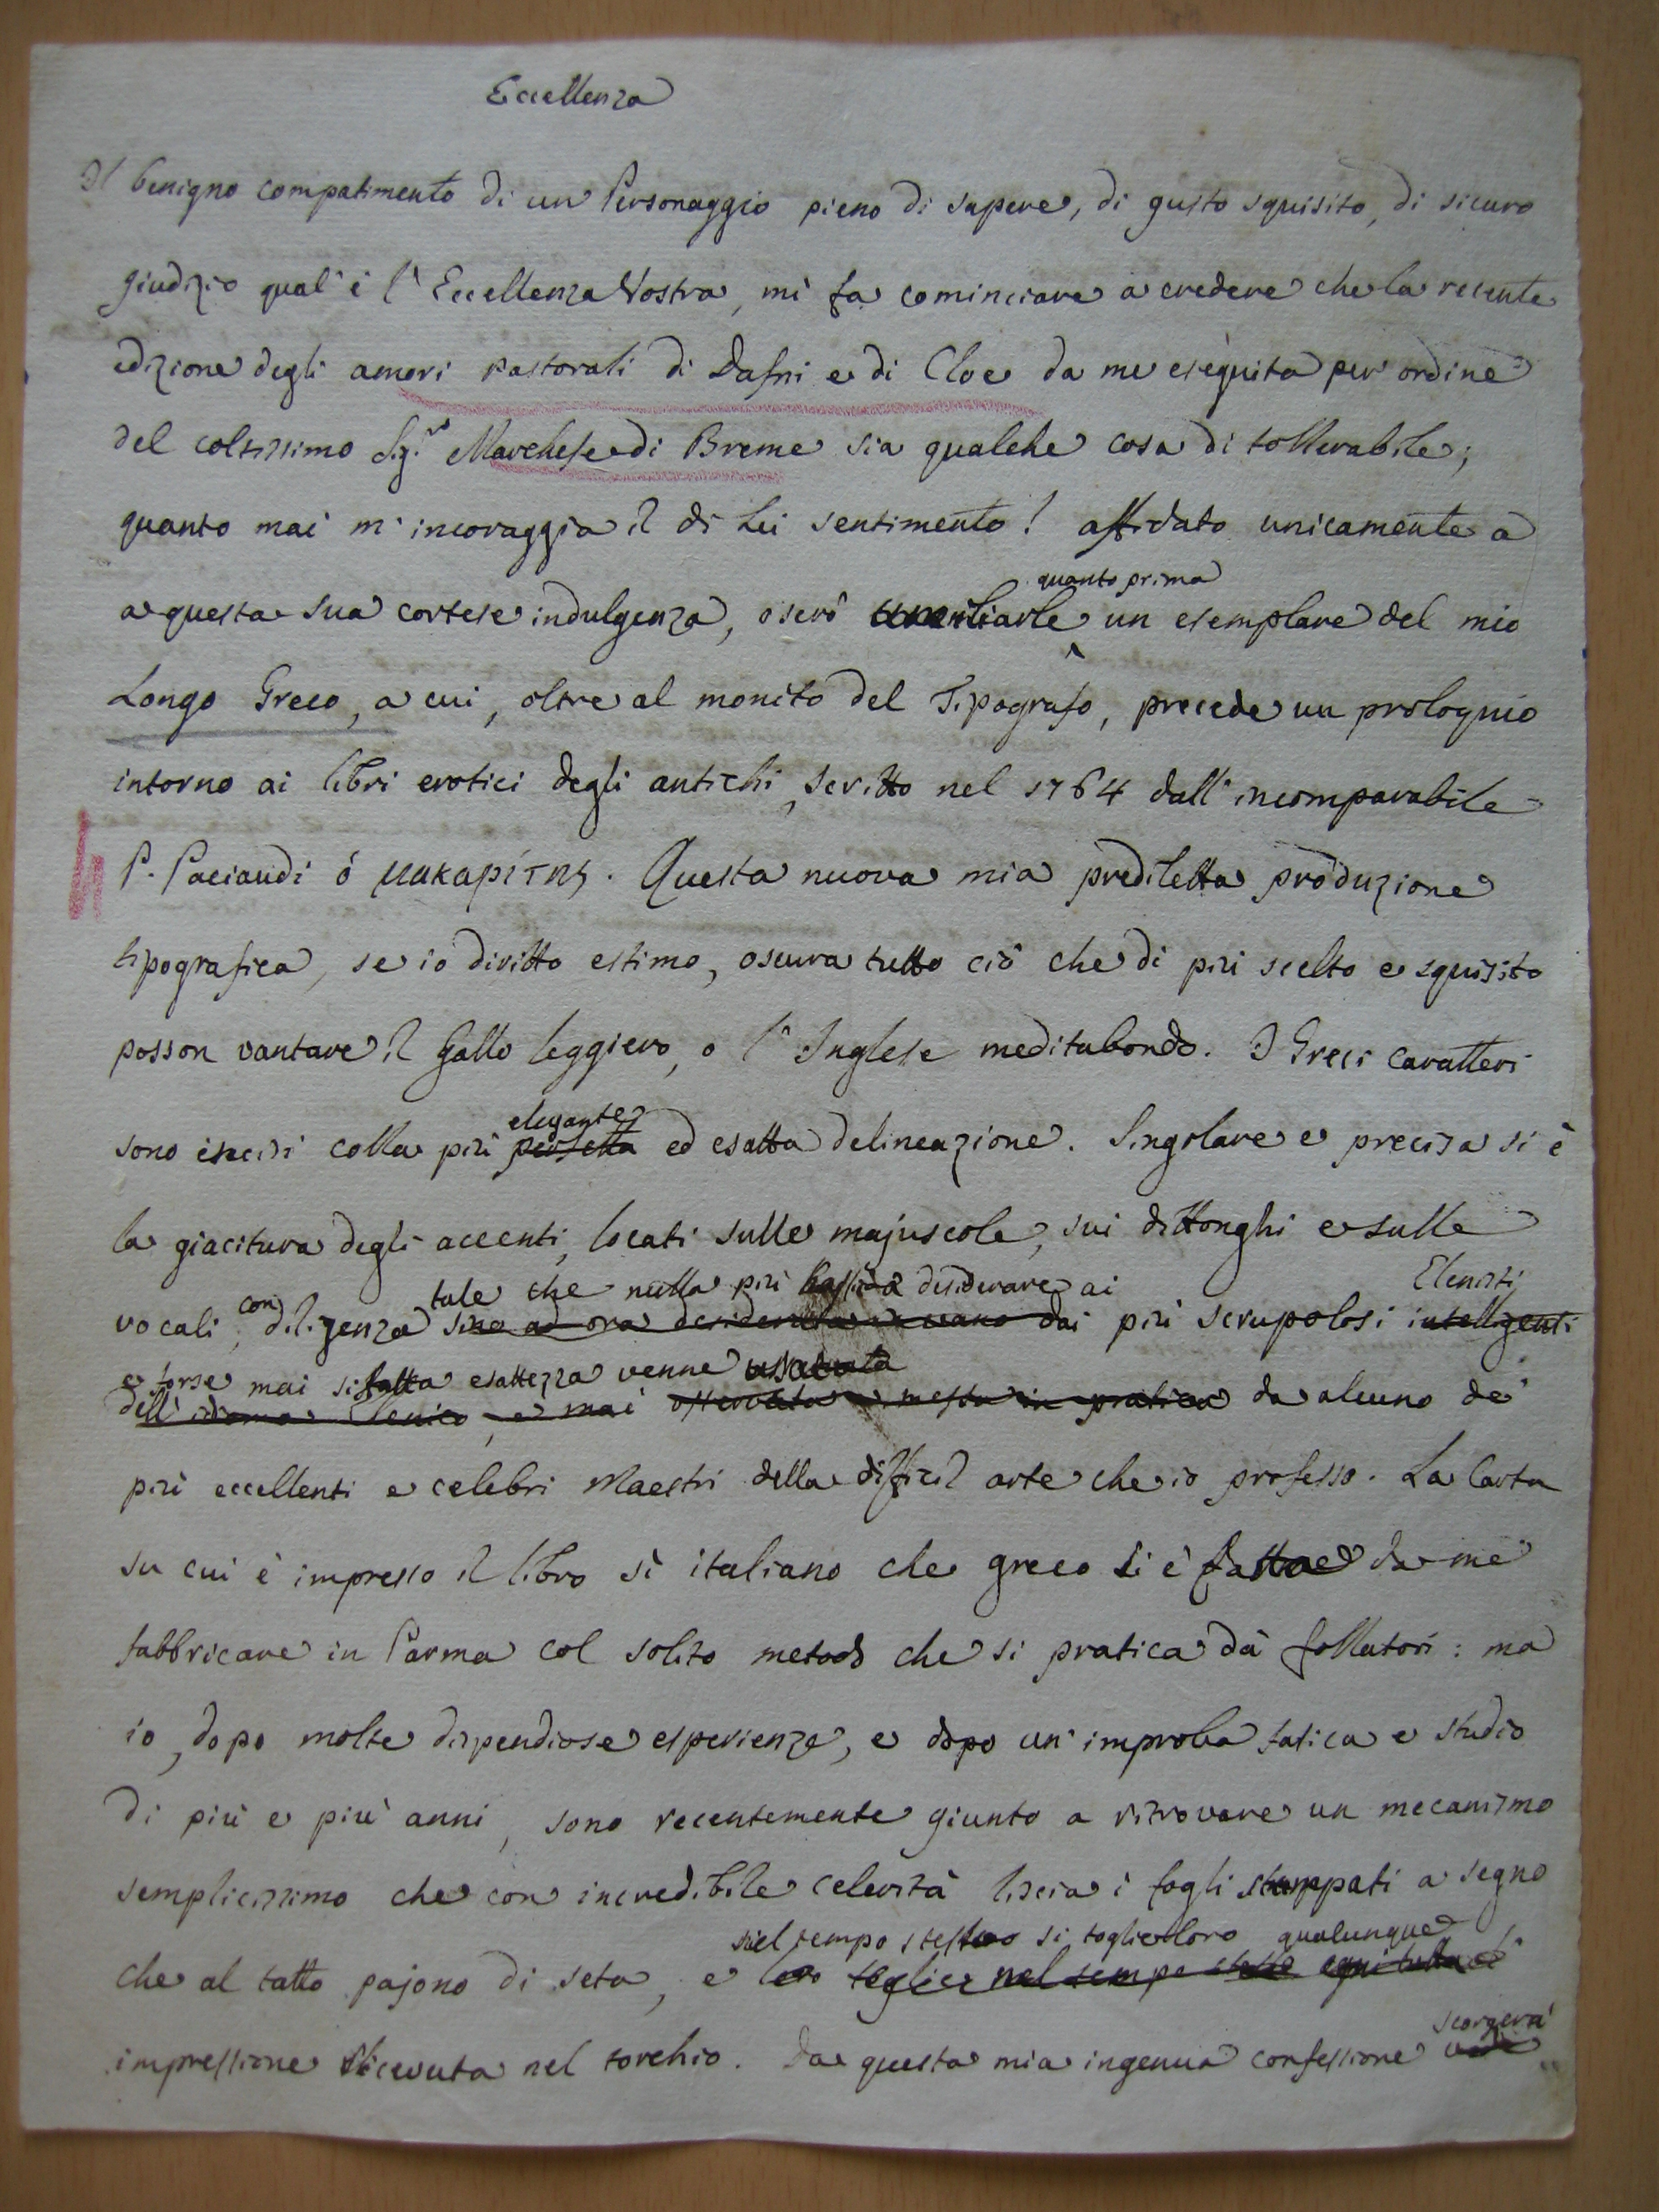 Eccellenza
Il benigno compatimento di un Personaggio pieno di sapere, di gusto squisito, di sicuro
giudizio qual'è l'Eccellenza Vostra, mi fa cominciare a credere che la recente
edizione degli amori pastorali di Dafni e di Cloe da me eseguita per ordine
del coltissimo Sig.r Marchese di Breme sia qualche cosa di tollerabile;
quanto mai m'incoraggia il di Lei sentimento! affidato unicamente a
a questa sua cortese indulgenza, oserò umiliarle un esemplare del mio
quanto prima
Longo Greco, a cui, oltre al monito del Tipografo, precede un proloquio
intorno ai libri erotici degli antichi, scritto nel 1764 dall'incomparabile
P. Paciaudi ὁ μακαρίτης. Questa nuova mia prediletta produzione
tipografica, se io diritto estimo, oscura tutto ciò che di più scelto e squisito
posson vantare il Gallo leggiero, o l'Inglese meditabondo. I Greci caratteri
sono incisi colla più perfetta ed esatta delineazione. Singolare e precisa si è
elegante
la giacitura degli accenti, locati sulle majuscole, sui dittonghi e sulle
tale che nulla più desiderare ai Elenisti
vocali, con diligenza sino ad ora desiderata in vano dai più scrupolosi intelligenti
e forse mai sifatta esattezza venne
dell'idioma Elenico, e mai osservata e messa in pratica da alcuno de'
più eccellenti e celebri Maestri della difficil arte che io professo. La Carta
su cui è impresso il libro sì italiano che greco si è fatta da me
fabbricare in Parma col solito metodo che si pratica dà follatori: ma
io, dopo molte dispendiose esperienze, e dopo un'improba fatica e studio
di più e più anni, sono recentemente giunto a ritrovare un mecanismo
semplicissimo che con incredibile celerità liscia i fogli stampati a segno
nel tempo stesso si toglie loro qualunque
che al tatto pajono di seta, e loro toglie nel tempo stesso ogni
scorgerà
impressione ricevuta nel torchio. Da questa mia ingenua confessione